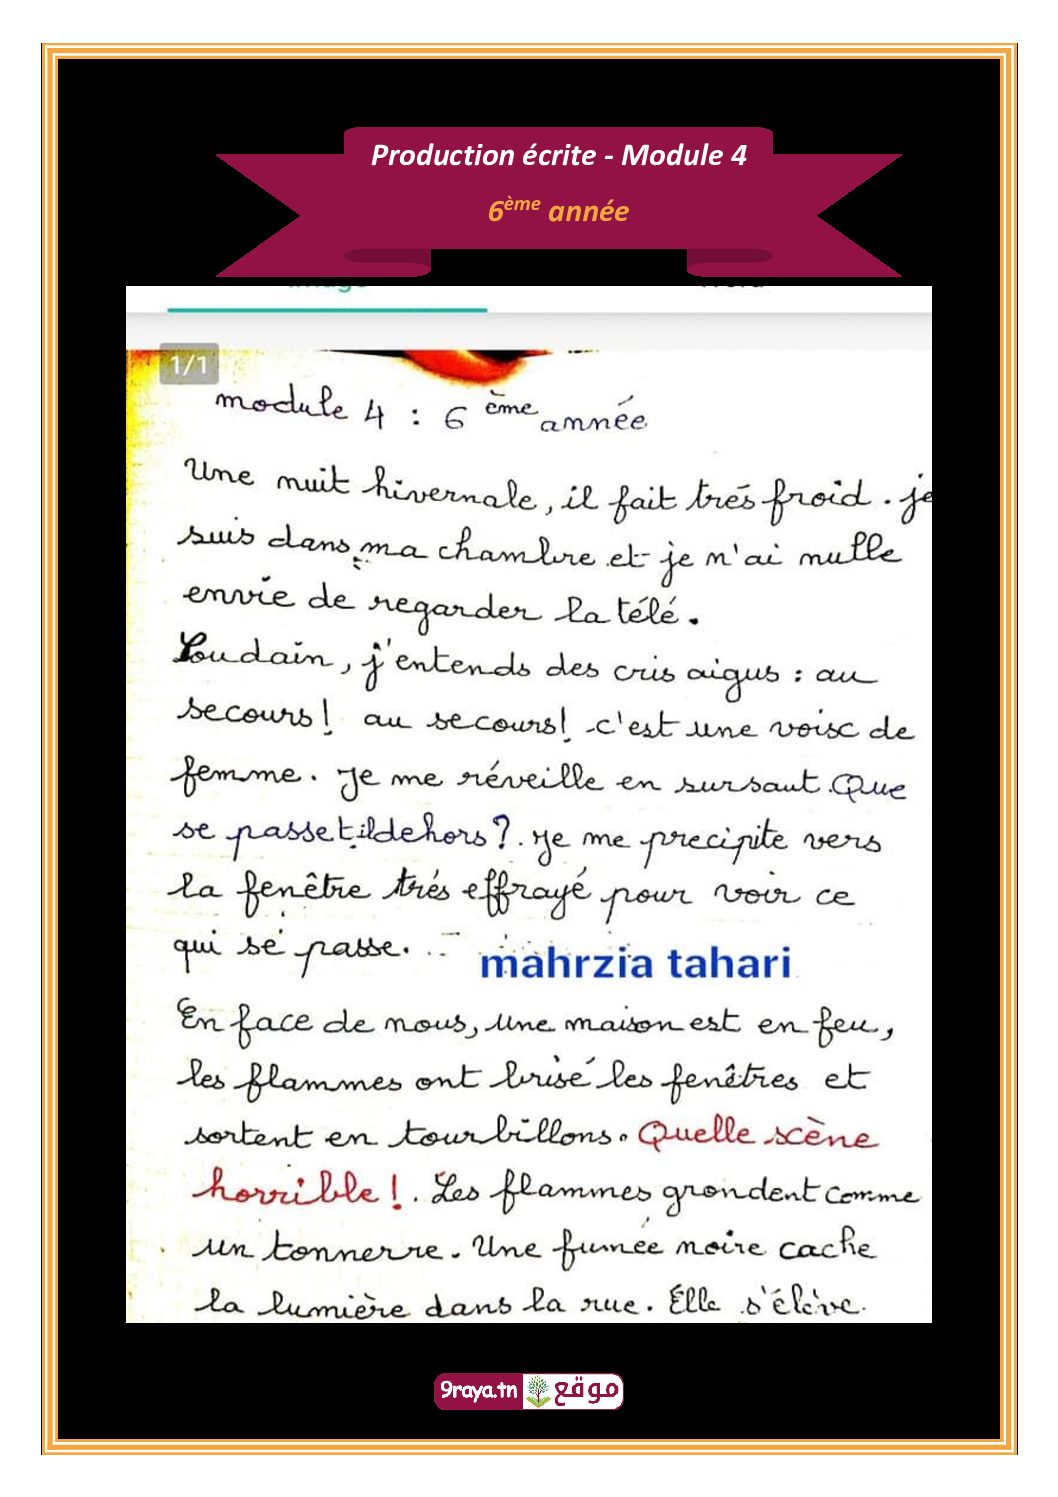 Production écrite - Module 4
6ème année
1/1
module 4 : 6 ème année
Une nuit hivernale, il fait trés froid. je
suis dans ma chambre et je n'ai nulle
envie de regarder la télé.
Soudain, j'entends des cris aigus : au
secours! au secours! c'est une voix de
femme. Je me réveille en sursaut. Que
se passetildehors?. Je me precipite vers
la fenêtre trés effrayé pour voir ce
qui se passe.
mahrzia tahari
En face de nous, une maison est en feu,
les flammes ont brisé les fenêtres et
sortent en tourbillons. Quelle scène
horrible!. Les flammes grondent comme
un tonnerre. Une fumée noire cache
la lumière dans la rue. Elle s'élève.
9raya.tn موقع